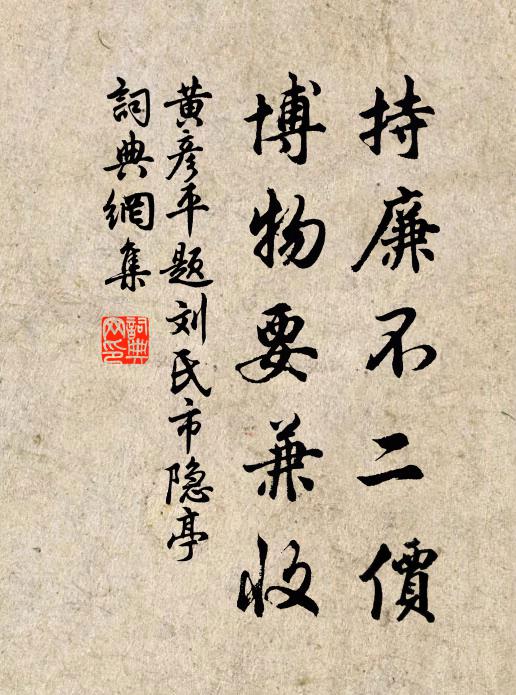 持廉不二價
博物要兼收
黄彦平题刘民市隐亭
詞典網集
詞典网印